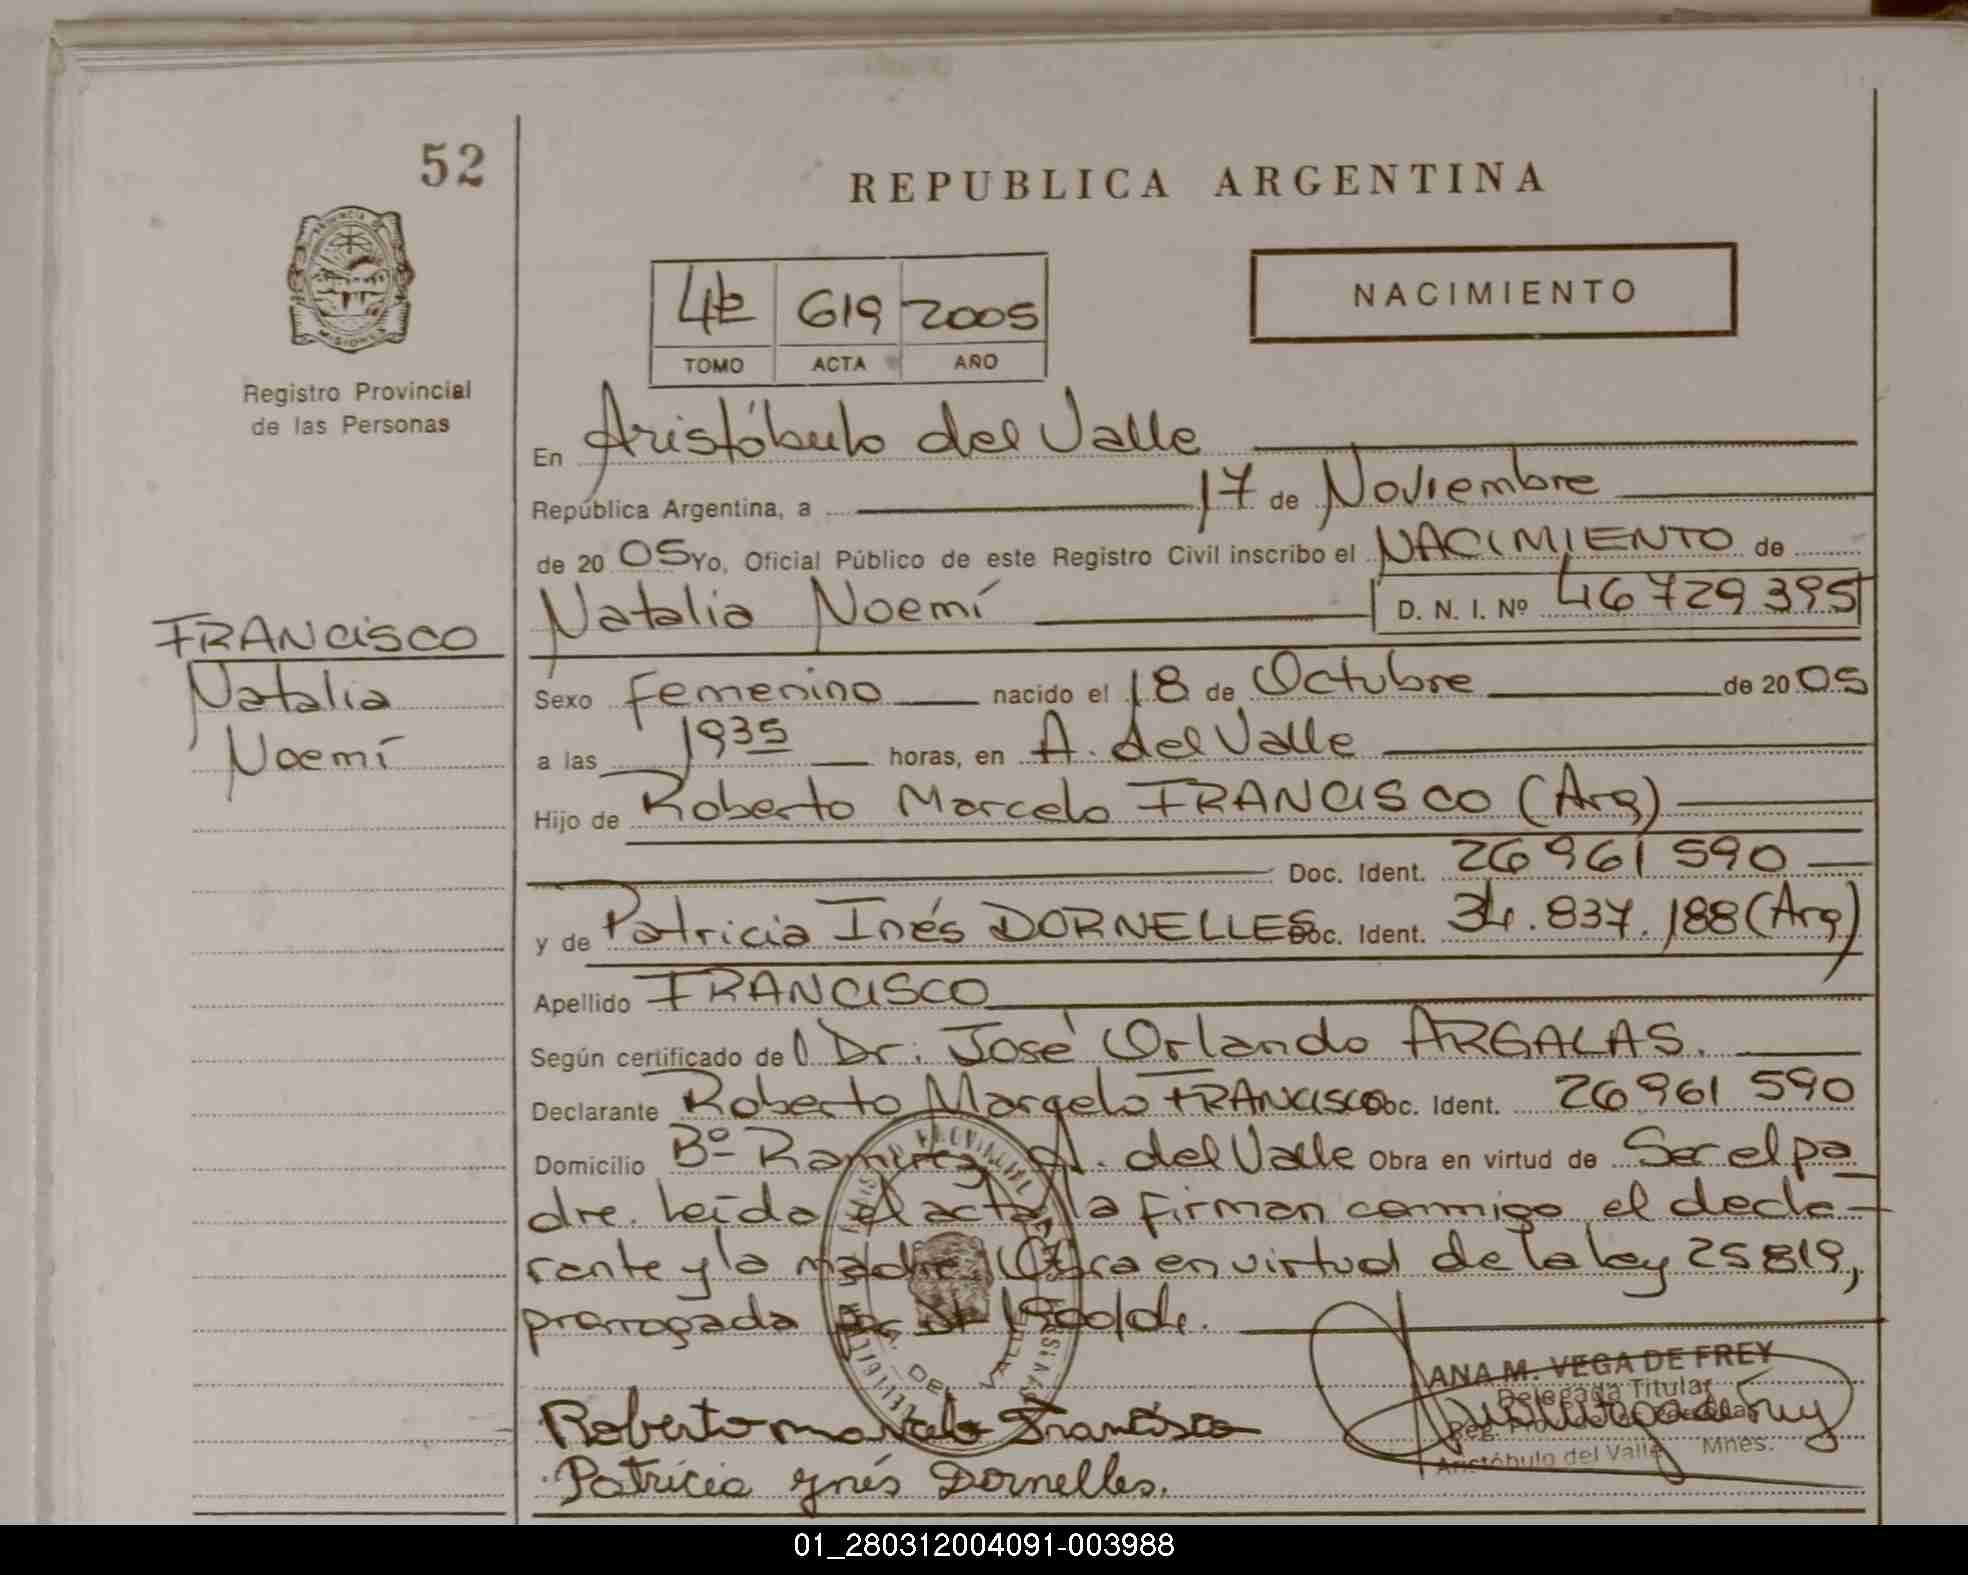 52
REPUBLICA ARGENTINA
PROVINCIA DE
MISIONES
NACIMIENTO
619 2005
TOMO ACTA AÑO
Registro Provincial
de las Personas
En Aristóbulo del Valle
República Argentina, a 17 de Noviembre
de 20 05 Yo, Oficial Público de este Registro Civil inscribo el NACIMIENTO de
Natalia Noemí D. N. I. Nº 46729395
FRANCISCO
Natalia
Noemí
Sexo Femenino nacido el 18 de Octubre de 20 05
a las 1935 horas, en A. del Valle
Hijo de Roberto Marcelo FRANCISCO (Arg)
Doc. Ident. 26961590
y de Patricia Inés DORNELLES Doc. Ident. 34.837.188 (Arg)
Apellido FRANCISCO
Según certificado del Dr. José Orlando ARGALAS.
Declarante Roberto Marcelo FRANCISCO Doc. Ident. 26961590
Domicilio Bº Ramírez A. del Valle Obra en virtud de Ser el pa
dre. Leída el acta, la firman conmigo el decla-
rante y la madre. Obra en virtud de la ley 25819,
prorrogada por
Roberto marcelo Francisco
Patricia ynés Dornelles.
ANA M. VEGA DE FREY
Delegada Titular
Aristóbulo del Valle Mnes.
01_280312004091-003988